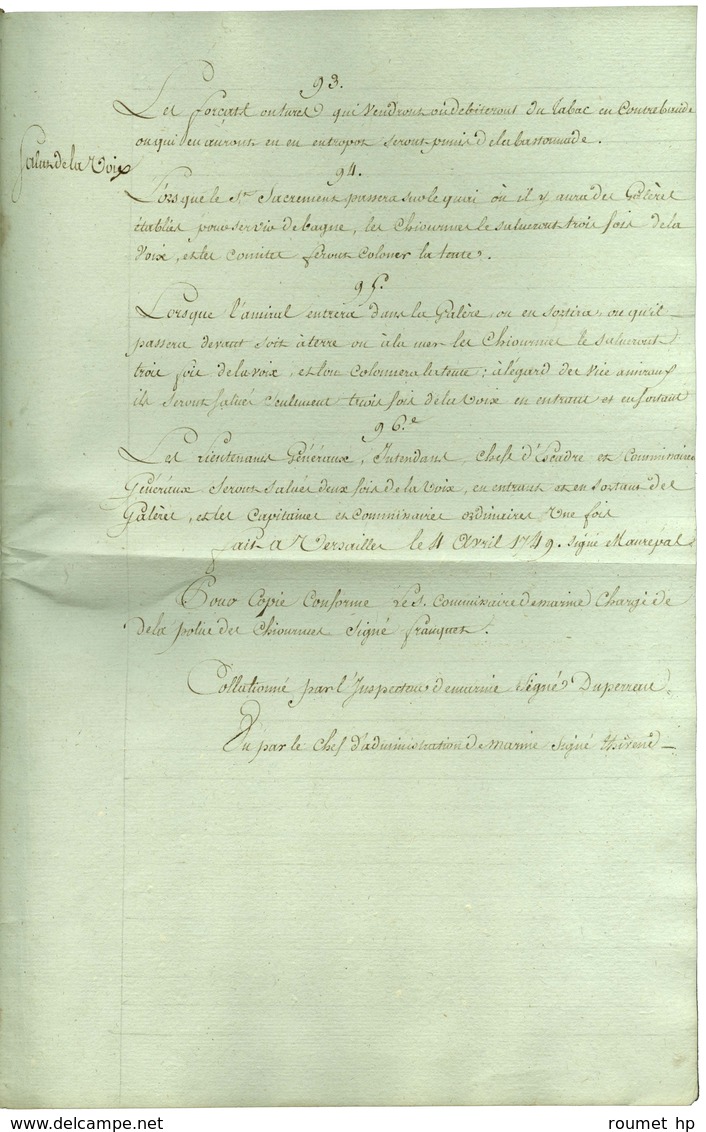 93.
Les forçats ou turcs qui Vendront ou debiteront du tabac en Contrebande
ou qui en auront en entrepos seront punis de la bastonnade.
Salut de la Voix
94.
Lorsque le St. Sacrement passera sur le quai où il y aura des Galères
établies pour servir de bagne, les Chiourmes le salueront trois fois de la
Voix, et les Comites feront la tente.
95.
Lorsque l'amiral entrera dans la Galère, ou en sortira, ou qu'il
passera devant soit à terre ou à la mer les Chiourmes le salueront
trois fois de la voix, et l'on la tente; à l'égard des Vice amiraux
ils seront salués seulement trois fois de la Voix en entrant et en sortant
96.e
Les Lieutenans Généraux, Intendans, Chefs d'Escadre et Commissaires
Généraux seront salués deux fois de la Voix, en entrant et en sortant des
Galères, et les Capitaines et Commissaires ordinaires Une fois
fait à Versailles le 4 Avril 1749. signé Maurepas
Pour Copie Conforme Le S. Commissaire de marine Chargé de
de la police des Chiourmes signé franquet.
Collationné par l'Inspecteur de marine signé Duperreau.
Vu par le Chef d'administration de marine signé
roumet hp